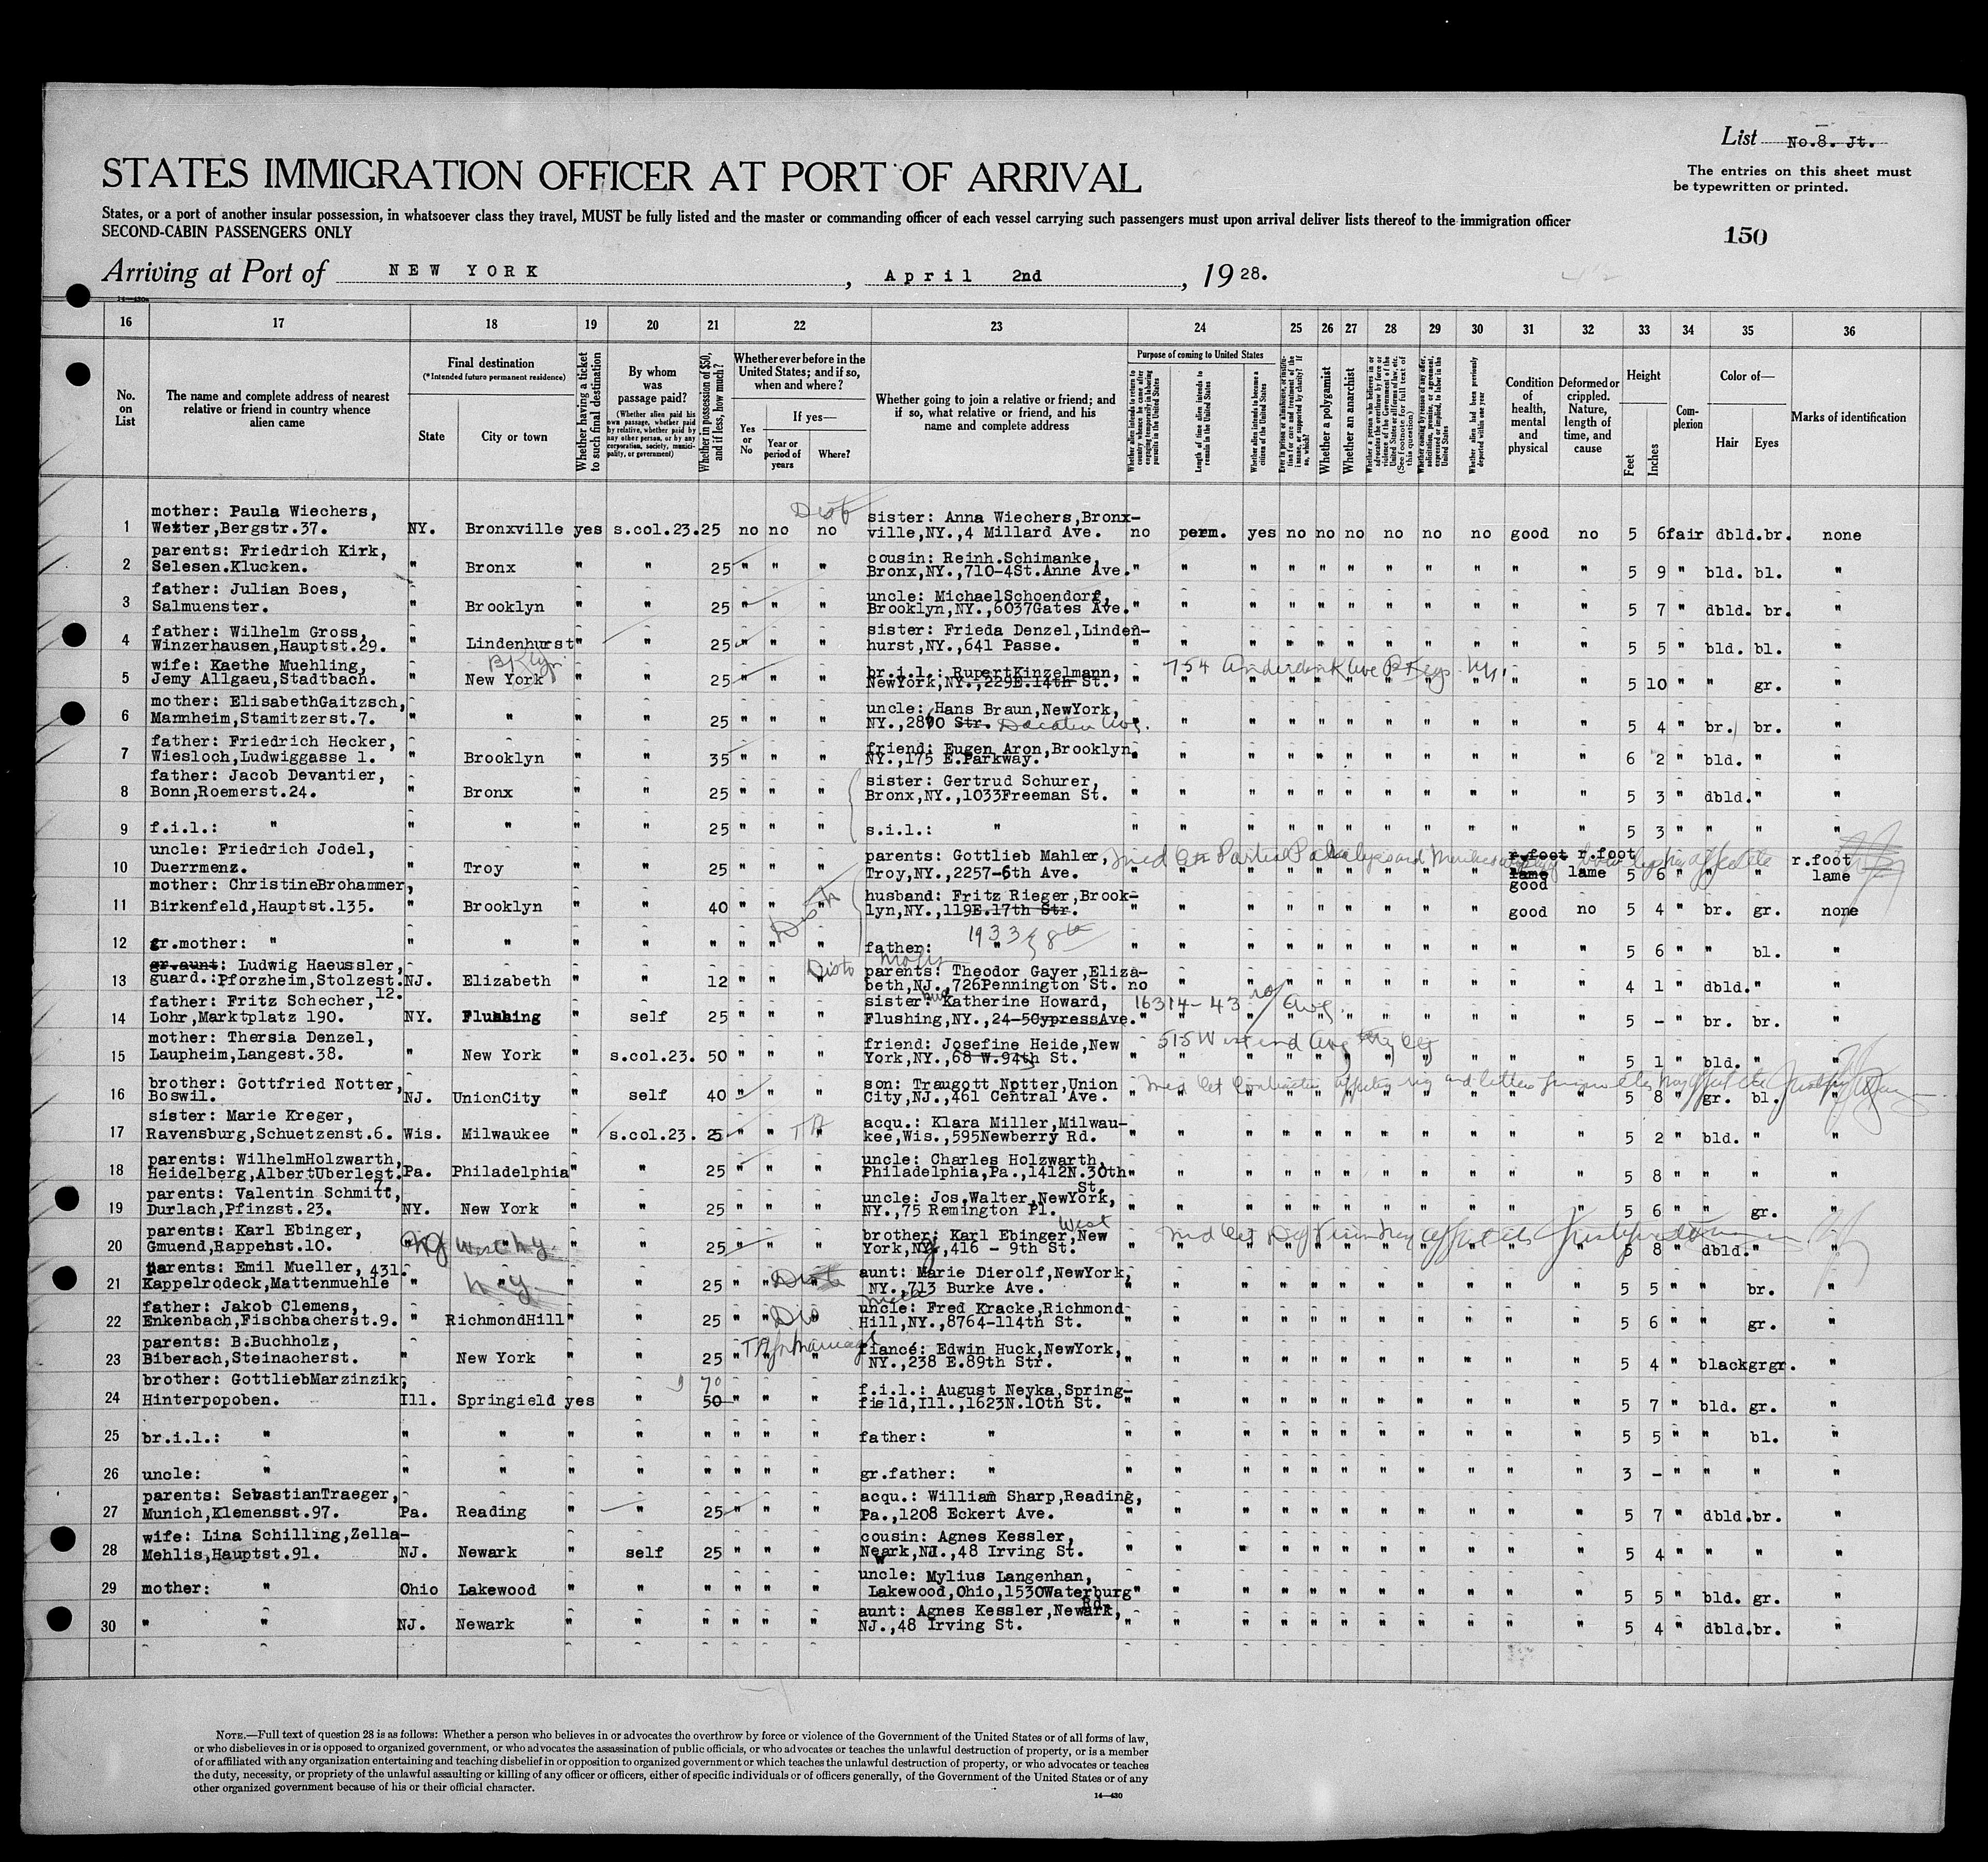 List No.8. Jt.
The entries on this sheet must
be typewritten or printed.
STATES IMMIGRATION OFFICER AT PORT OF ARRIVAL
States, or a port of another insular possession, in whatsoever class they travel, MUST be fully listed and the master or commanding officer of each vessel carrying such passengers must upon arrival deliver lists thereof to the immigration officer
SECOND-CABIN PASSENGERS ONLY
150
Arriving at Port of NEW YORK, April 2nd, 1928.
14-430
16 17 18 19 20 21 22 23 24 25 26 27 28 29 30 31 32 33 34 35 36
No. on List
The name and complete address of nearest relative or friend in country whence alien came
Final destination
(*Intended future permanent residence)
State
City or town
Whether having a ticket to such final destination
By whom was passage paid?
(Whether alien paid his own passage, whether paid by relative, whether paid by any other person, or by any corporation, society, municipality, or government)
Whether in possession of $50, and if less, how much?
Whether ever before in the United States; and if so, when and where?
Yes or No
If yes—
Year or period of years
Where?
Whether going to join a relative or friend; and if so, what relative or friend, and his name and complete address
Purpose of coming to United States
Whether alien intends to return to country whence he came after engaging temporarily in laboring pursuits in the United States
Length of time alien intends to remain in the United States
Whether alien intends to become a citizen of the United States
Ever in prison or almshouse, or institution for care and treatment of the insane, or supported by charity? If so, which?
Whether a polygamist
Whether an anarchist
Whether a person who believes in or advocates the overthrow by force or violence of the Government of the United States or all forms of law, etc. (See footnote for full text of this question)
Whether coming by reason of any offer, solicitation, promise, or agreement, expressed or implied, to labor in the United States
Whether alien had been previously deported within one year
Condition of health, mental and physical
Deformed or crippled. Nature, length of time, and cause
Height
Feet
Inches
Complexion
Color of—
Hair
Eyes
Marks of identification
1 mother: Paula Wiechers,
Wetter,Bergstr.37. NY. Bronxville yes s.col.23. 25 no no no sister: Anna Wiechers,Bronx-
ville,NY.,4 Millard Ave. no perm. yes no no no no no no good no 5 6 fair dbld. br. none
2 parents: Friedrich Kirk,
Selesen.Klucken. " Bronx " " 25 " " " cousin: Reinh.Schimanke,
Bronx,NY.,710-4St.Anne Ave. " " " " " " " " " " " 5 9 " bld. bl. "
3 father: Julian Boes,
Salmuenster. " Brooklyn " " 25 " " " uncle: MichaelSchoendorf,
Brooklyn,NY.,6037Gates Ave. " " " " " " " " " " " 5 7 " dbld. br. "
4 father: Wilhelm Gross,
Winzerhausen,Hauptst.29. " Lindenhurst " " 25 " " " sister: Frieda Denzel,Linden-
hurst,NY.,641 Passe. " " " " " " " " " " " 5 5 " bld. bl. "
5 wife: Kaethe Muehling,
Jemy Allgaeu,Stadtbach. " New York " " 25 " " " br.i.l.: RupertKinzelmann,
NewYork,NY.,229E.14th St. " " " " " " " " " " " 5 10 " " gr. "
6 mother: ElisabethGaitzsch,
Mannheim,Stamitzerst.7. " " " " 25 " " " uncle: Hans Braun,NewYork,
NY.,2860 Str. " " " " " " " " " " " 5 4 " br. br. "
7 father: Friedrich Hecker,
Wiesloch,Ludwiggasse 1. " Brooklyn " " 35 " " " friend: Eugen Aron,Brooklyn,
NY.,175 E.Parkway. " " " " " " " " " " " 6 2 " bld. " "
8 father: Jacob Devantier,
Bonn,Roemerst.24. " Bronx " " 25 " " " sister: Gertrud Schurer,
Bronx,NY.,1033Freeman St. " " " " " " " " " " " 5 3 " dbld. " "
9 f.i.l.: " " " " " 25 " " " s.i.l.: " " " " " " " " " " " " 5 3 " " " "
10 uncle: Friedrich Jodel,
Duerrmenz. " Troy " " 25 " " " parents: Gottlieb Mahler,
Troy,NY.,2257-6th Ave. " " " " " " " " " r.foot lame good r.foot lame 5 6 " " " r.foot lame
11 mother: ChristineBrohammer,
Birkenfeld,Hauptst.135. " Brooklyn " " 40 " " " husband: Fritz Rieger,Brook-
lyn,NY.,119E.17th Str. " " " " " " " " " good no 5 4 " br. gr. none
12 gr.mother: " " " " " " " " " father: " 1933 " " " " " " " " " " " 5 6 " " bl. "
13 gr.aunt: Ludwig Haeussler,
guard.:Pforzheim,Stolzest.12. NJ. Elizabeth " " 12 " " " parents: Theodor Gayer,Eliza-
beth,NJ.,726Pennington St. no " " " " " " " " " " 4 1 " dbld. " "
14 father: Fritz Schecher,
Lohr,Marktplatz 190. NY. Flushing " self 25 " " " sister: Katherine Howard,
Flushing,NY.,24-5CypressAve. 16314-43 Ave. " " " " " " " " " " " 5 - " br. br. "
15 mother: Thersia Denzel,
Laupheim,Langest.38. " New York " s.col.23. 50 " " " friend: Josefine Heide,New
York,NY.,68 W.94th St. 515 West end Ave " " " " " " " " " " " 5 1 " bld. " "
16 brother: Gottfried Notter,
Boswil. NJ. UnionCity " self 40 " " " son: Traugott Notter,Union
City,NJ.,461 Central Ave. " " " " " " " " " " " 5 8 " gr. bl. "
17 sister: Marie Kreger,
Ravensburg,Schuetzenst.6. Wis. Milwaukee " s.col.23. 25 " " " acqu.: Klara Miller,Milwau-
kee,Wis.,595Newberry Rd. " " " " " " " " " " " 5 2 " bld. " "
18 parents: WilhelmHolzwarth,
Heidelberg,AlbertUberlest. Pa. Philadelphia " " 25 " " " uncle: Charles Holzwarth,
Philadelphia,Pa.,1412N.30th
St. " " " " " " " " " " " 5 8 " " " "
19 parents: Valentin Schmitt,
Durlach,Pfinzst.23. NY. New York " " 25 " " " uncle: Jos.Walter,NewYork,
NY.,75 Remington Pl. " " " " " " " " " " " 5 6 " " gr. "
20 parents: Karl Ebinger,
Gmuend,Rappenst.10. " " " " 25 " " " brother: Karl Ebinger,New
York,NY.,416 - 9th St. West " " " " " " " " " " " 5 8 " dbld. " "
21 parents: Emil Mueller,
Kappelrodeck,Mattenmuehle 431. " " " " 25 " " " aunt: Marie Dierolf,NewYork,
NY.,713 Burke Ave. " " " " " " " " " " " 5 5 " " br. "
22 father: Jakob Clemens,
Enkenbach,Fischbacherst.9. " RichmondHill " " 25 " " " uncle: Fred Kracke,Richmond
Hill,NY.,8764-114th St. " " " " " " " " " " " 5 6 " " gr. "
23 parents: B.Buchholz,
Biberach,Steinacherst. " New York " " 25 " " " fiancé: Edwin Huck,NewYork,
NY.,238 E.89th Str. " " " " " " " " " " " 5 4 " blackgr gr. "
24 brother: GottliebMarzinzik,
Hinterpopoben. Ill. Springield yes " 50 70 " " " f.i.l.: August Neyka,Spring-
field,Ill.,1623N.10th St. " " " " " " " " " " " 5 7 " bld. gr. "
25 br.i.l.: " " " " " " " " " father: " " " " " " " " " " " " 5 5 " " bl. "
26 uncle: " " " " " " " " " gr.father: " " " " " " " " " " " " 3 - " " " "
27 parents: SebastianTraeger,
Munich,Klemensst.97. Pa. Reading " " 25 " " " acqu.: William Sharp,Reading,
Pa.,1208 Eckert Ave. " " " " " " " " " " " 5 7 " dbld. br. "
28 wife: Lina Schilling,Zella-
Mehlis,Hauptst.91. NJ. Newark " self 25 " " " cousin: Agnes Kessler,
Newark,NJ.,48 Irving St. " " " " " " " " " " " 5 4 " " " "
29 mother: " Ohio Lakewood " " " " " " uncle: Mylius Langenhan,
Lakewood,Ohio,1530Waterburg
Rd. " " " " " " " " " " " 5 5 " bld. gr. "
30 " " NJ. Newark " " " " " " aunt: Agnes Kessler,Newark,
NJ.,48 Irving St. " " " " " " " " " " " 5 4 " dbld. br. "
NOTE.—Full text of question 28 is as follows: Whether a person who believes in or advocates the overthrow by force or violence of the Government of the United States or of all forms of law,
or who disbelieves in or is opposed to organized government, or who advocates the assassination of public officials, or who advocates or teaches the unlawful destruction of property, or is a member
of or affiliated with any organization entertaining and teaching disbelief in or opposition to organized government or which teaches the unlawful destruction of property, or who advocates or teaches
the duty, necessity, or propriety of the unlawful assaulting or killing of any officer or officers, either of specific individuals or of officers generally, of the Government of the United States or of any
other organized government because of his or their official character.
14—430